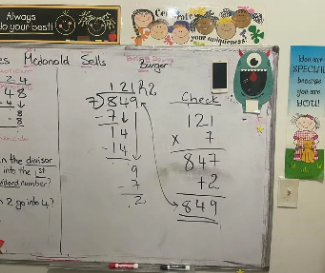 Always
do your best!
Celebrate
your uniqueness!
es Mcdonald Sells
Burger
48
8
8
in the divisor
into the 1st
dividend number?
2 go into 4?
121 R2
7 849
-7
14
-14
9
-7
2
Check
121
x 7
847
+2
849
You are
SPECIAL
because
you are
YOU!